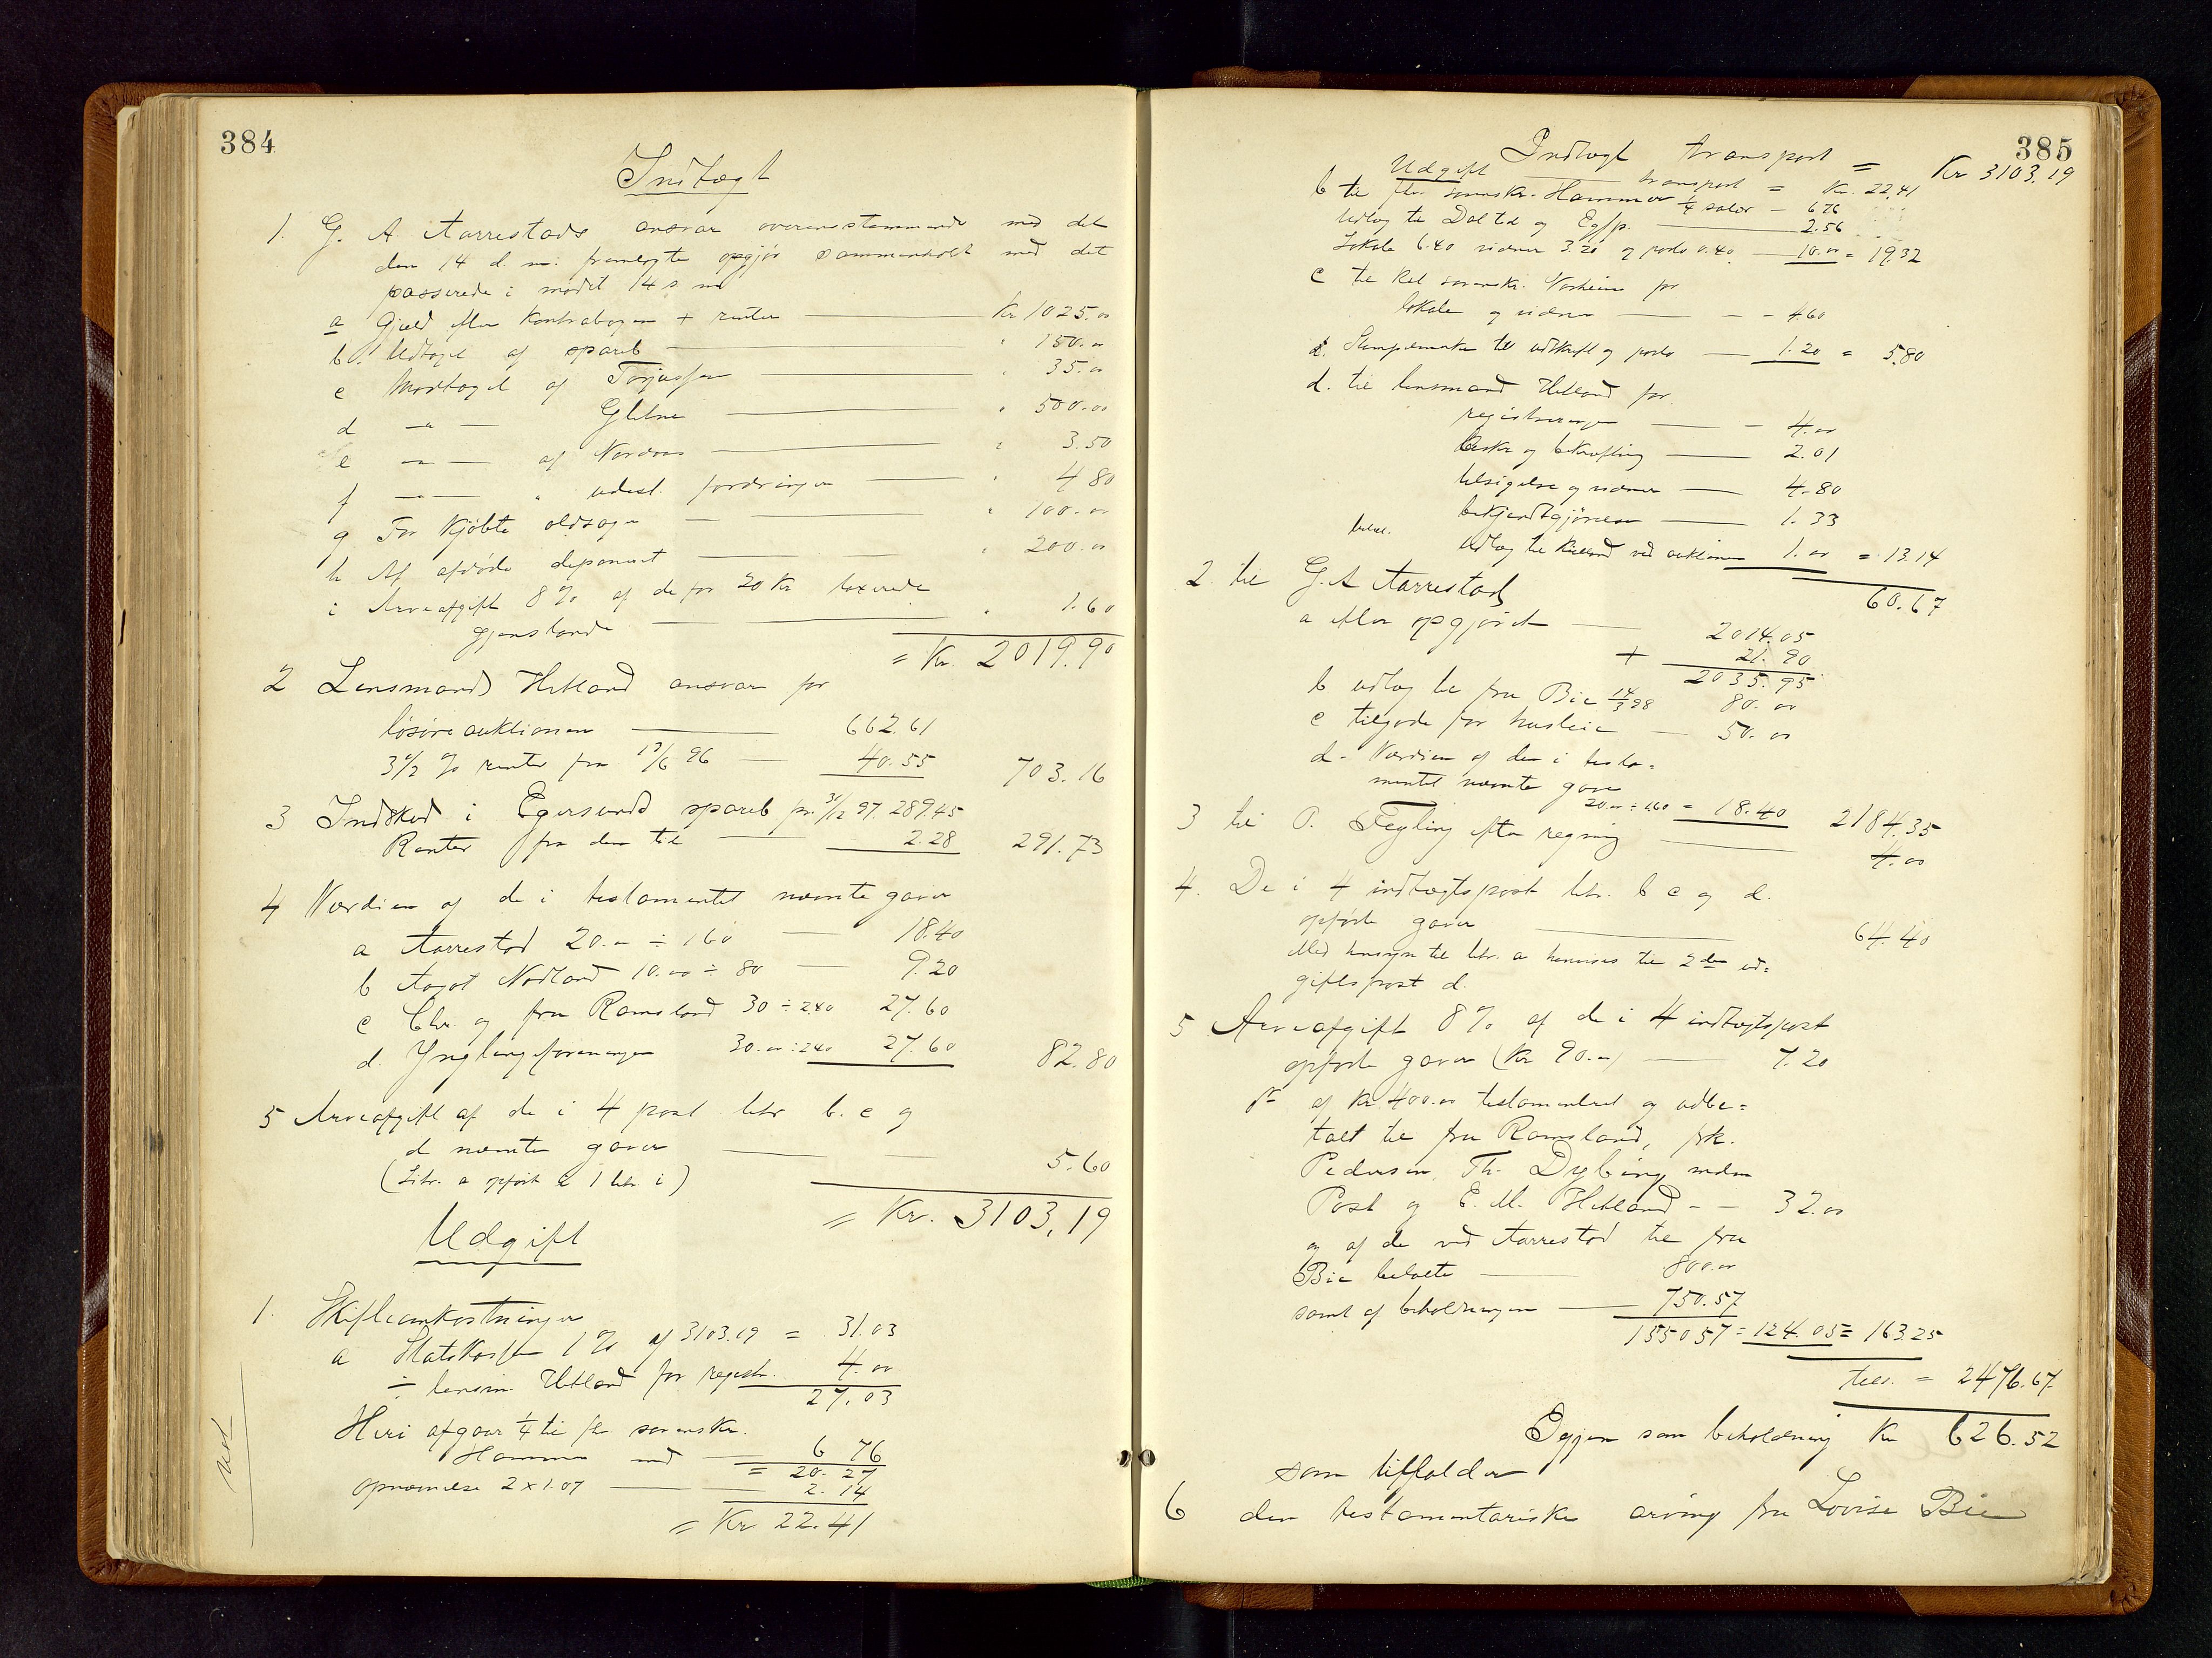 384
Indtægt
1. G. A Aarrestads ansvar overensstemmende med det
den 14 d. m. fremlagte opgjør sammenholdt med det
passerede i mødet 14 s m
a Gjæld efter Kontrabogen + renter Kr 1025.00
b. Udtaget af spareb " 150.00
c Modtaget af Torjussen " 35.00
d -"- Gletne " 500.00
e -"- af Nordaas " 3.50
f -"- " udest. fordringer " 4 80
g For kjøbte oldsager " 100.00
h Af afdøde deponeret " 200.00
i Arveafgift 8% af de for 20 Kr taxerede
gjenstande " 1.60
= Kr. 2019.90
2 Lensmand Hetland ansvar for
løsøreauktionen 662.61
3 1/2 % renter fra 17/6 96 40.55 703.16
3 Indskud i Egersunds spareb pr. 31/12 97. 289.45
Renter fra den tid 2.28 291.73
4 Værdien af de i testamentet nævnte gaver
a Aarrestad 20.- ÷ 160 18.40
b Aagot Nodland 10.00 ÷ 80 9.20
c Chr. og fru Ramsland 30 ÷ 240 27.60
d. Ynglingeforeningen 30.00 ÷ 240 27.60 82.80
5 Arveafgift af de i 4 post litr b. c og
d nævnte gaver 5.60
(Litr. a opført i 1 litr i)
= Kr. 3103,19
Udgift
1. Skifteomkostninger
a Statskassen 1% af 3103.19 = 31.03
÷ lensm. Hetland for registr. 4.00
27.03
Heri afgaar 1/4 til fhv sorenskr.
Hammer med 6 76
= 20.27
opnævnelse 2 x 1.07 2.14
= Kr 22.41
385
Indtægt transport = Kr 3103.19
Udgift transport = Kr. 22,41
b til fhv. sorenskr. Hammer 1/4 salær - 6.76
Udlæg til Daltid og Egsp. 2.56
Lokale 6.40 vidner 3.20 og porto 0.40 10.00 = 19.32
c til kst sorenskr. Norheim for
lokale og vidner - - 4.60
Stempelmærke til udskrift og porto 1.20 = 5.80
d. til lensmand Hetland for
registreringen - 4.00
beskr og bekræftning 2.01
tilsigelse og vidner 4.80
bekjendtgjørelse 1.33
Udlæg til Hetland ved auktionen 1.00 = 13.14
60.67
2. til G. A Aarrestad
a efter opgjøret 2014.05
+ 21.90
2035.95
b udlæg til fru Bie 14/3 98 80.00
c tilgode for husleie 50.00
d. Værdien af den i testa=
mentet nævnte gave
20.00 ÷ 1.60 = 18.40 2184.35
3 til P. Fegling efter regning 4.00
4. De i 4 indtægtspost litr. b c og d.
opførte gaver 64.40
Med hensyn til litr. a henvises til 2den ud=
giftspost d.
5 Arveafgift 8% af de i 4 indtægtspost
opførte gaver (Kr 90.-) 7.20
af Kr. 400.00 testamenteret og udbe=
talt til fru Ramsland, frk.
Pedersen, Th. Dybing, mdm
Post og E. M. Hetland - - 32.00
og af de ved Aarrestad til fru
Bie betalte 800.00
samt af beholdningen 750.57
1550.57 = 124.05 = 163.25
tils. = 2476.67
Igjen som beholdning Kr 626.52
som tilfalder
6 den testamentariske arving fru Lovise Bie